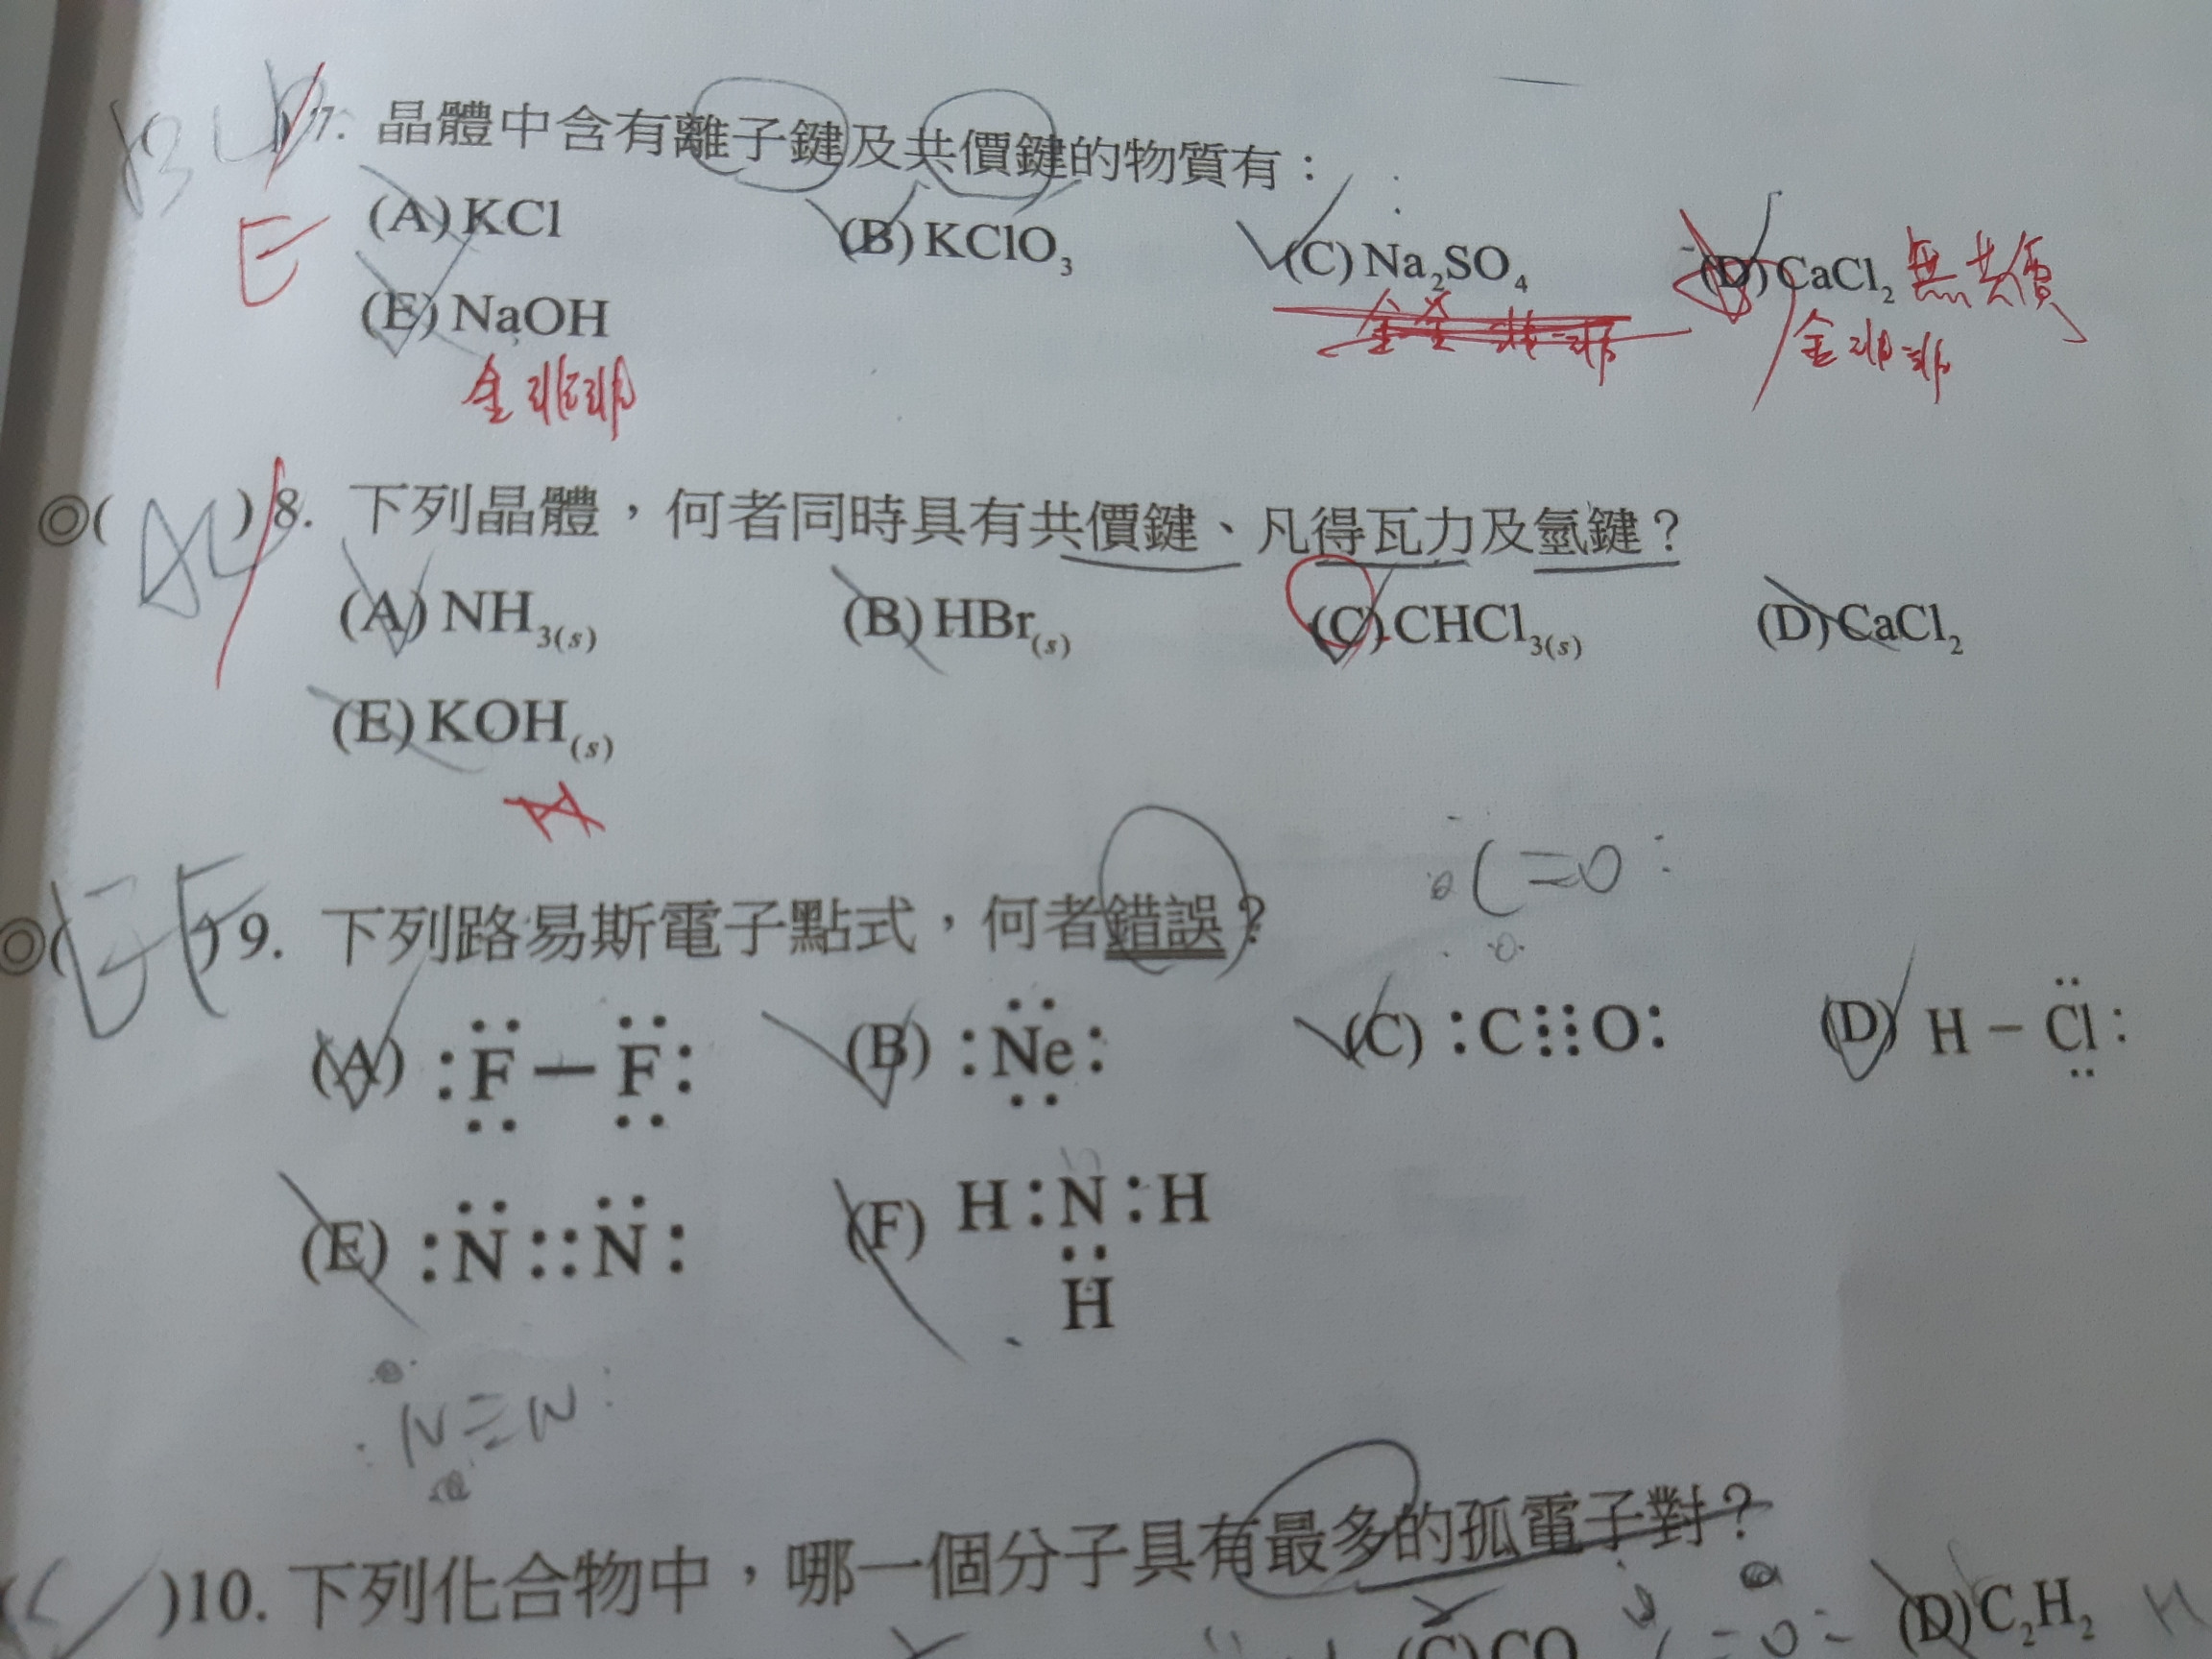 7. 晶體中含有離子鍵及共價鍵的物質有：
E (A) KCl (B) KClO₃ (C) Na₂SO₄ (D) CaCl₂ 無共價
(E) NaOH 金非非
金非非
◎( ) 8. 下列晶體，何者同時具有共價鍵、凡得瓦力及氫鍵？
(A) NH₃₍s₎ (B) HBr₍s₎ (C) CHCl₃₍s₎ (D) CaCl₂
(E) KOH₍s₎
A
:C=O:
◎(EF) 9. 下列路易斯電子點式，何者錯誤？
(A) :F̤̈—F̤̈: (B) :N̤̈e: (C) :C⫶⫶O: (D) H－C̤̈l:
(E) :N̈::N̈: (F) H:N:H
¨
H
N≡N
( )10. 下列化合物中，哪一個分子具有最多的孤電子對？
(C) CO (D) C₂H₂ H